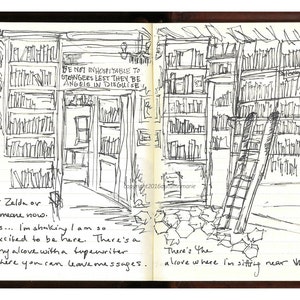 BE NOT INHOSPITABLE TO
STRANGERS LEST THEY BE
ANGELS IN DISGUISE
Zelda or
someone now.
I'm shaking I am so
excited to be here. There's a
alcove with a typewriter
where you can leave messages.
There's the
alcove where I'm sitting near